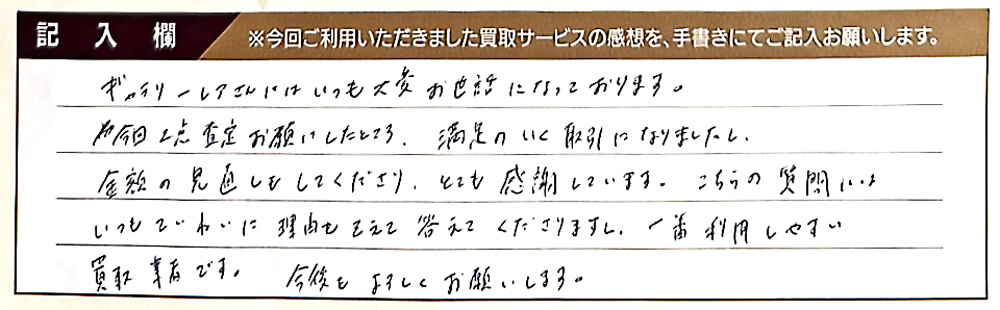 記入欄 ※今回ご利用いただきました買取サービスの感想を、手書きにてご記入お願いします。
ギャラリーレアさんにはいつも大変お世話になっております。
今回2点査定お願いしたところ、満足のいく取引になりましたし、
金額の見直しもしてくださり、とても感謝しています。こちらの質問には
いつもていねいに理由も交えて答えてくださりますし、一番利用しやすい
買取業者です。今後もよろしくお願いします。